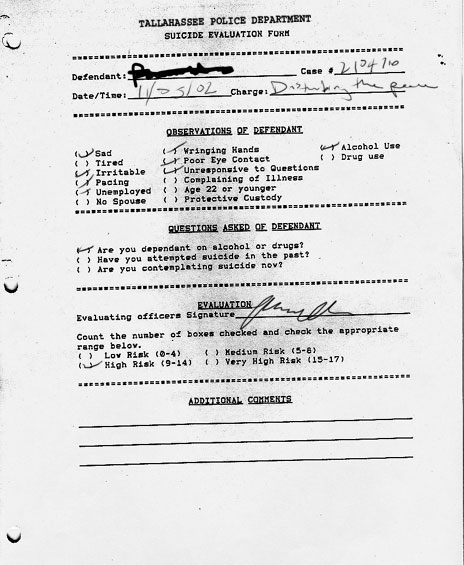 TALLAHASSEE POLICE DEPARTMENT
SUICIDE EVALUATION FORM
Defendant: Case # 2104710
Date/Time: 11/05/02 Charge: Disturbing the peace
OBSERVATIONS OF DEFENDANT
(✓) Sad (✓) Wringing Hands (✓) Alcohol Use
( ) Tired (✓) Poor Eye Contact ( ) Drug use
(✓) Irritable (✓) Unresponsive to Questions
(✓) Pacing ( ) Complaining of Illness
(✓) Unemployed ( ) Age 22 or younger
( ) No Spouse ( ) Protective Custody
QUESTIONS ASKED OF DEFENDANT
(✓) Are you dependant on alcohol or drugs?
( ) Have you attempted suicide in the past?
( ) Are you contempleting suicide now?
EVALUATION
Evaluating officers Signature
Count the number of boxes checked and check the appropriate
range below.
( ) Low Risk (0-4) ( ) Medium Risk (5-8)
(✓) High Risk (9-14) ( ) Very High Risk (15-17)
ADDITIONAL COMMENTS